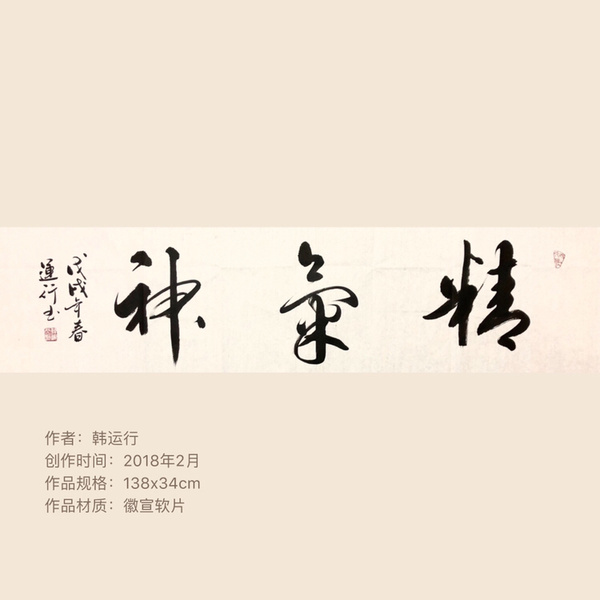 精氣神
戊戌年春
運行书
作者：韩运行
创作时间：2018年2月
作品规格：138x34cm
作品材质：徽宣软片